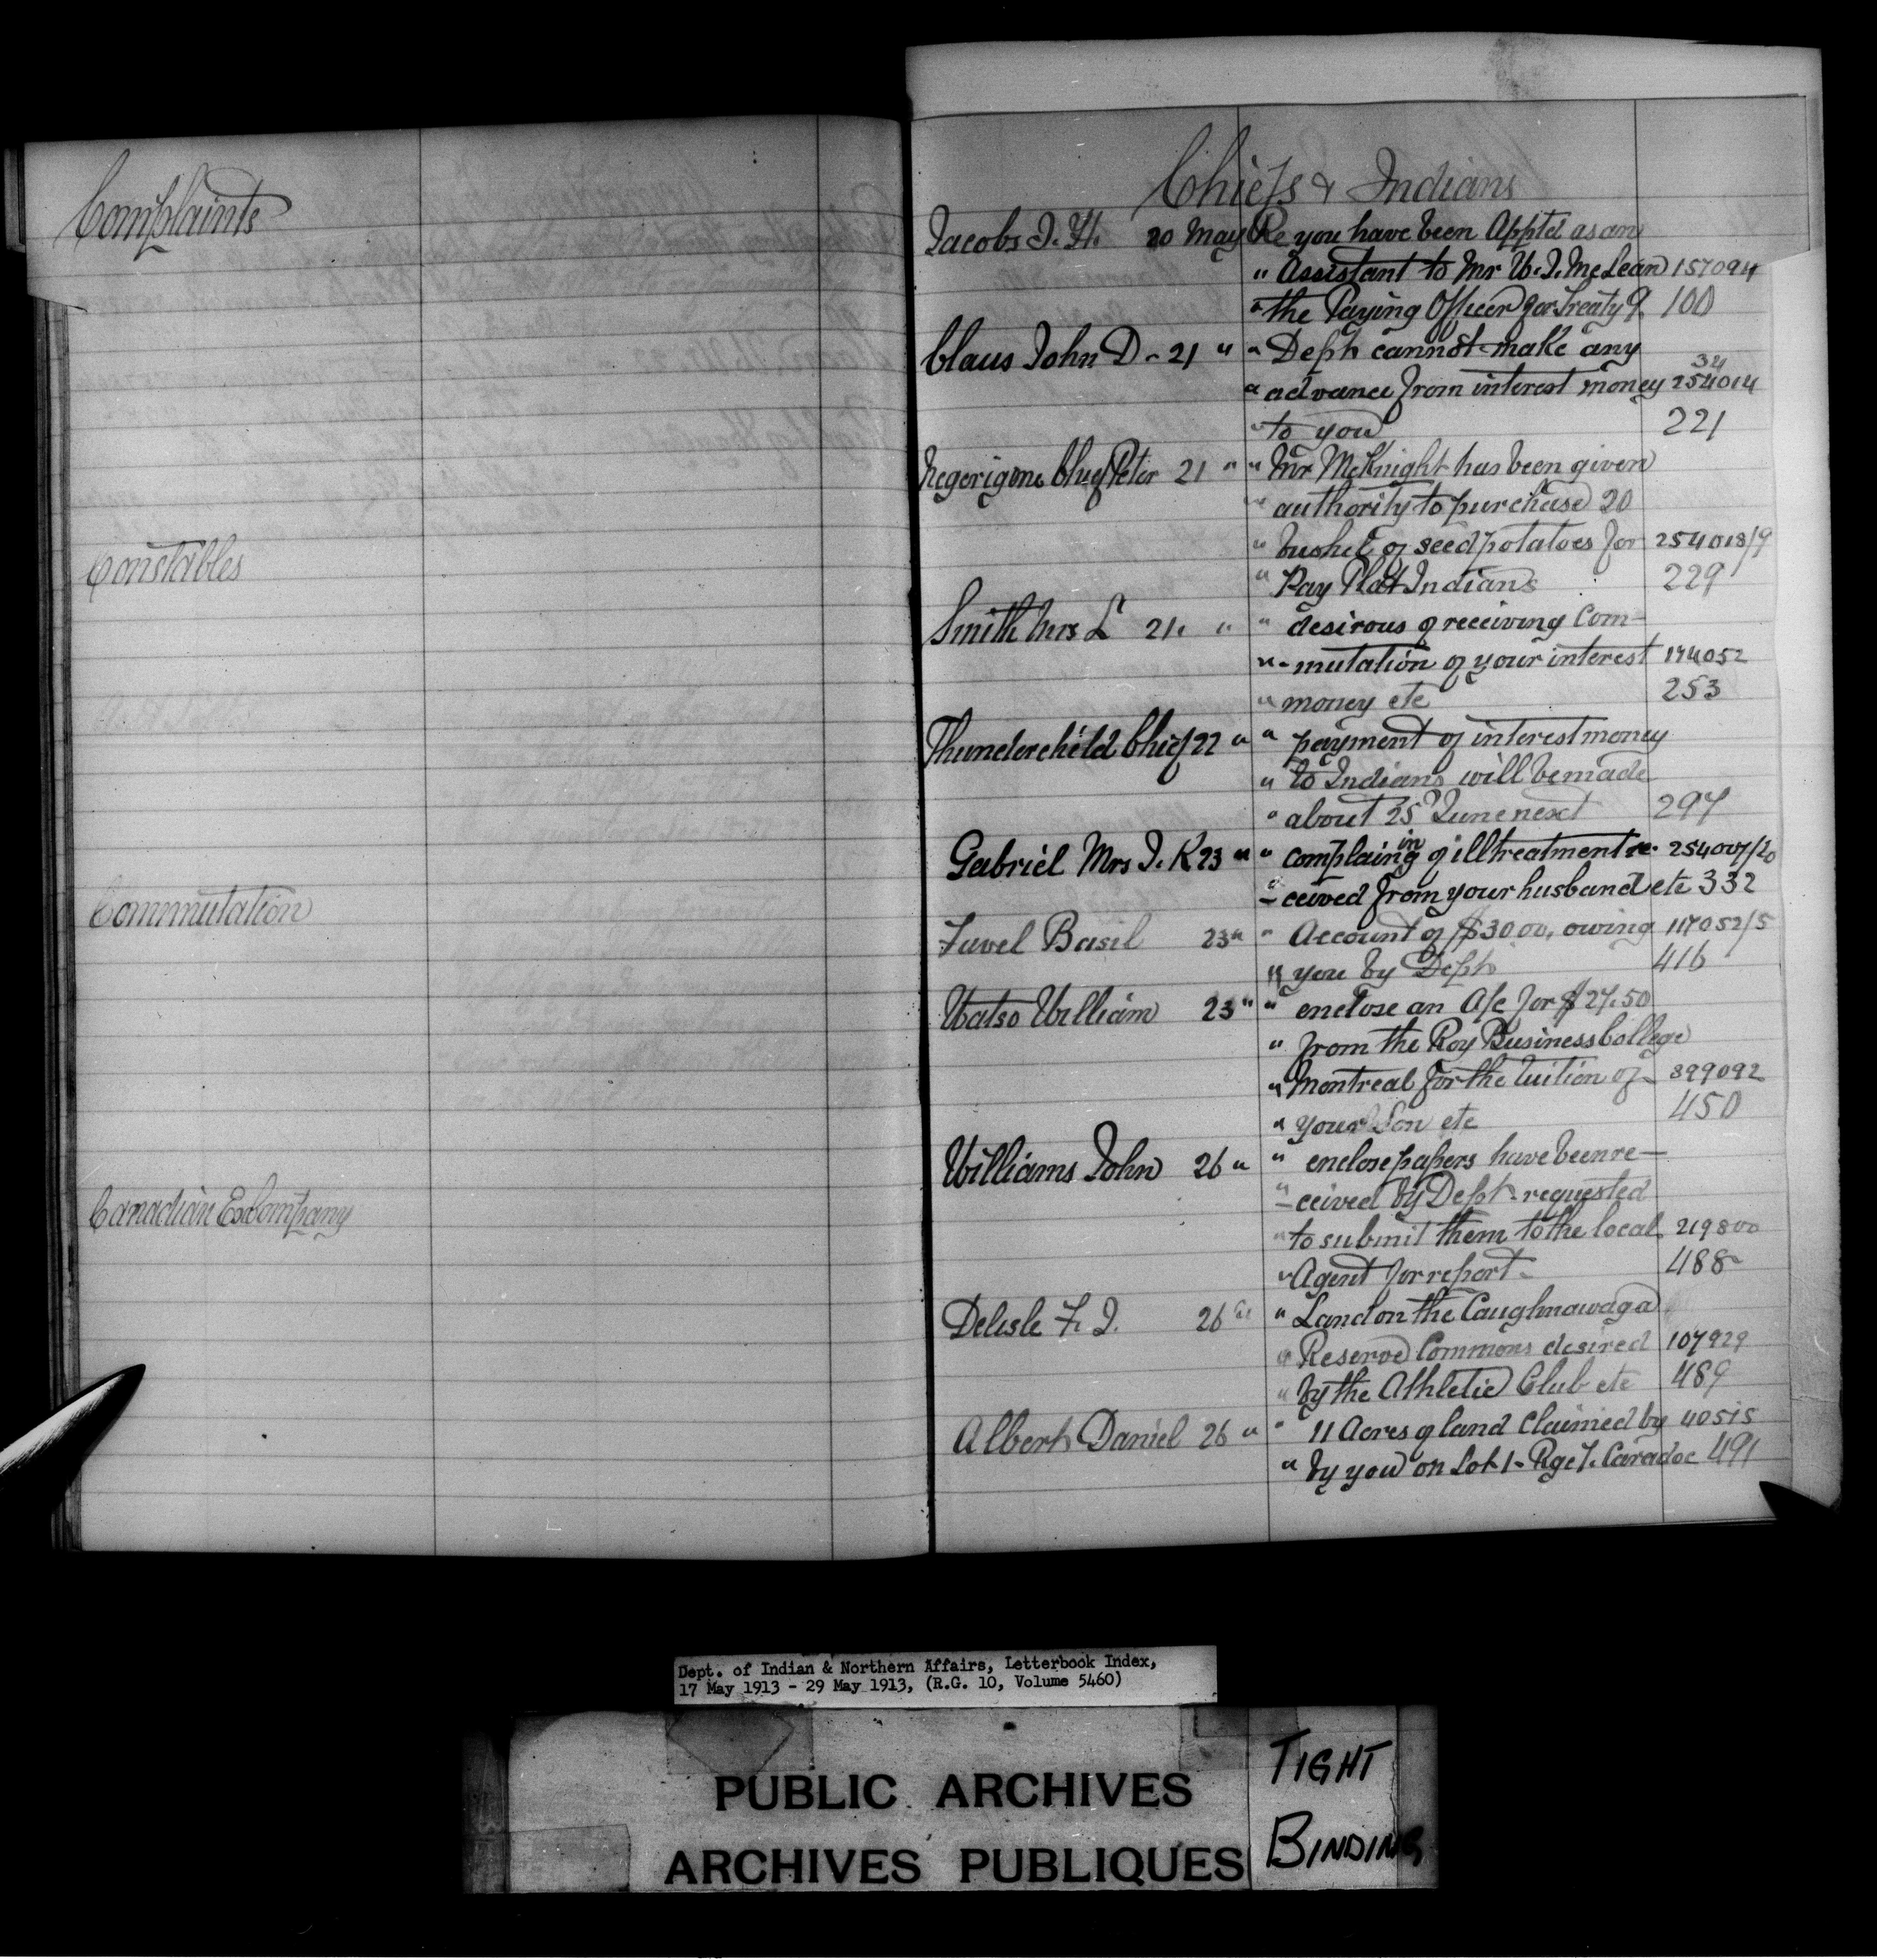 Complaints
Constables
Commutation
Canadian Ex Company
Chiefs & Indians
Jacobs J. H. 20 May Re you have been Apptd as an
" Assistant to Mr W. J. McLean 157094
" the Paying Officer for Treaty 9 100
Claus John D - 21 " " Dept cannot make any 34
" advance from interest money 254014
" to you 221
Chief Peter 21 " " Mr McKnight has been given
" authority to purchase 20
" bushel of seed potatoes for 254018/9
" Pay Plat Indians 229
Smith Mrs L 21. " " desirous of receiving Com-
" - mutation of your interest 174052
" money etc 253
Thunderchild Chief 22 " " payment of interest money
" to Indians will be made
" about 25 June next 297
Gabriel Mrs J. K 23 " " complaining of illtreatment re- 254007/20
" - ceived from your husband etc 332
Favel Basil 23 " " Account of $30 00, owing 117052/5
" you by Dept 416
Watso William 23 " " enclose an A/c for $27.50
" from the Roy Business College
" Montreal for the tuition of 399092
" your Son etc 450
Williams John 26 " " enclose papers have been re-
" - ceived by Dept - requested
" to submit them to the local 219800
" Agent for report - 488
Delisle F. J. 26 " " Land on the Caughnawaga
" Reserve Commons desired 107929
" by the Athletic Club etc 489
Albert Daniel 26 " " 11 Acres of land claimed by 40515
" by you on Lot 1 - Rge 7. Caradoc 491
Dept. of Indian & Northern Affairs, Letterbook Index,
17 May 1913 - 29 May 1913, (R.G. 10, Volume 5460)
PUBLIC ARCHIVES
ARCHIVES PUBLIQUES
TIGHT
BINDING